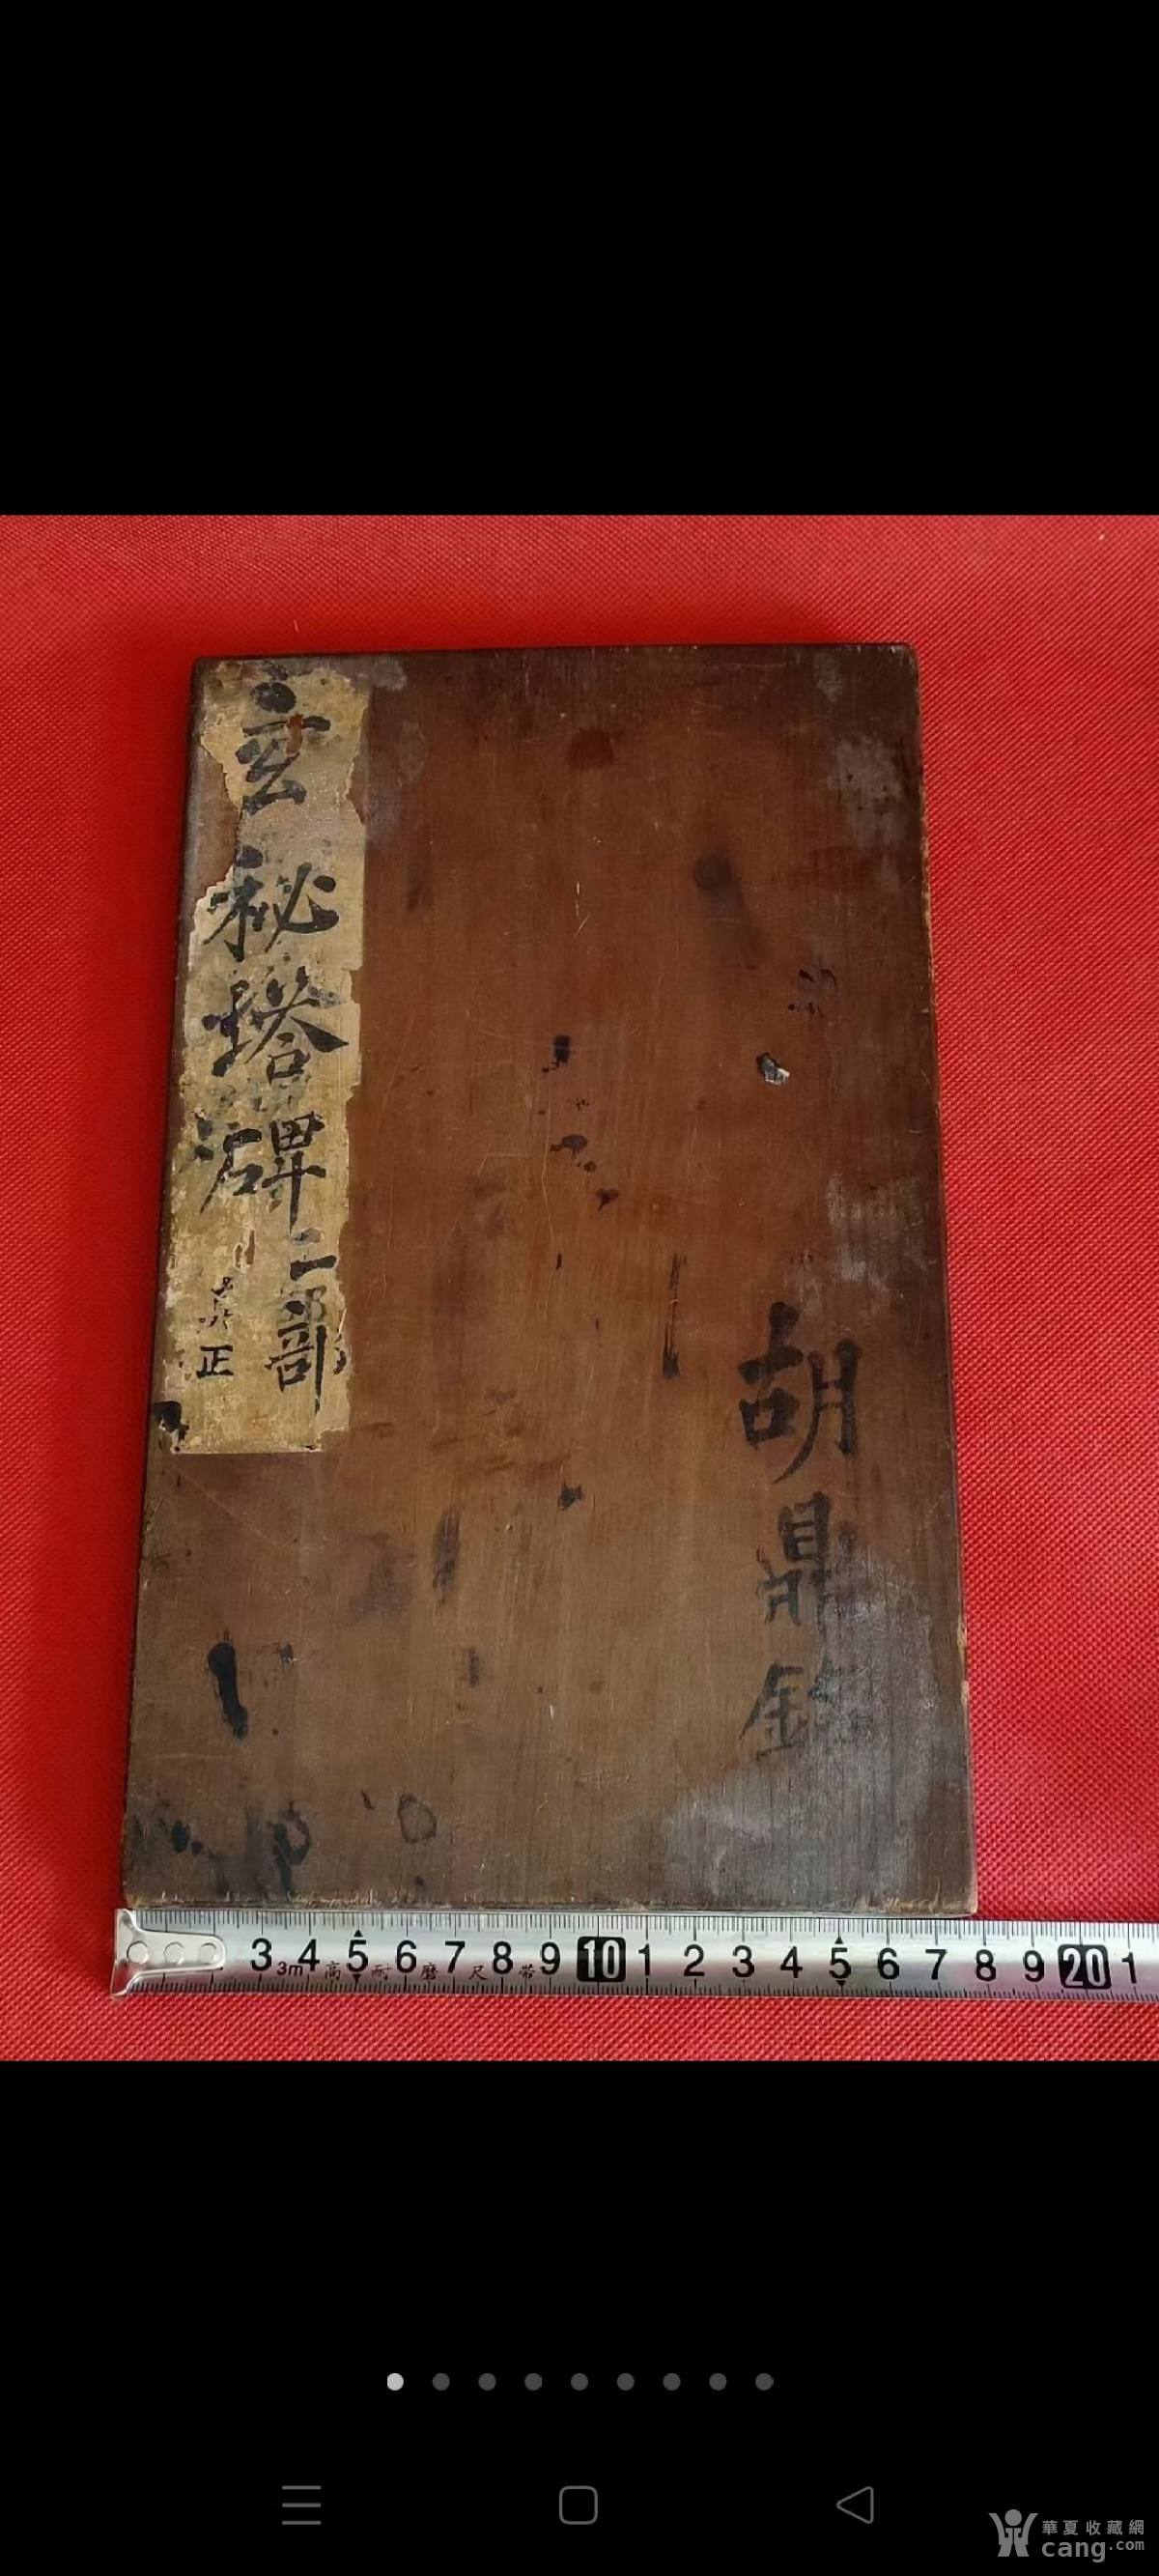 玄秘塔碑二部
真正
胡鼎
3 4 5 6 7 8 9 10 1 2 3 4 5 6 7 8 9 20 1
3m 高耐磨尺带
華夏收藏網
cang.com